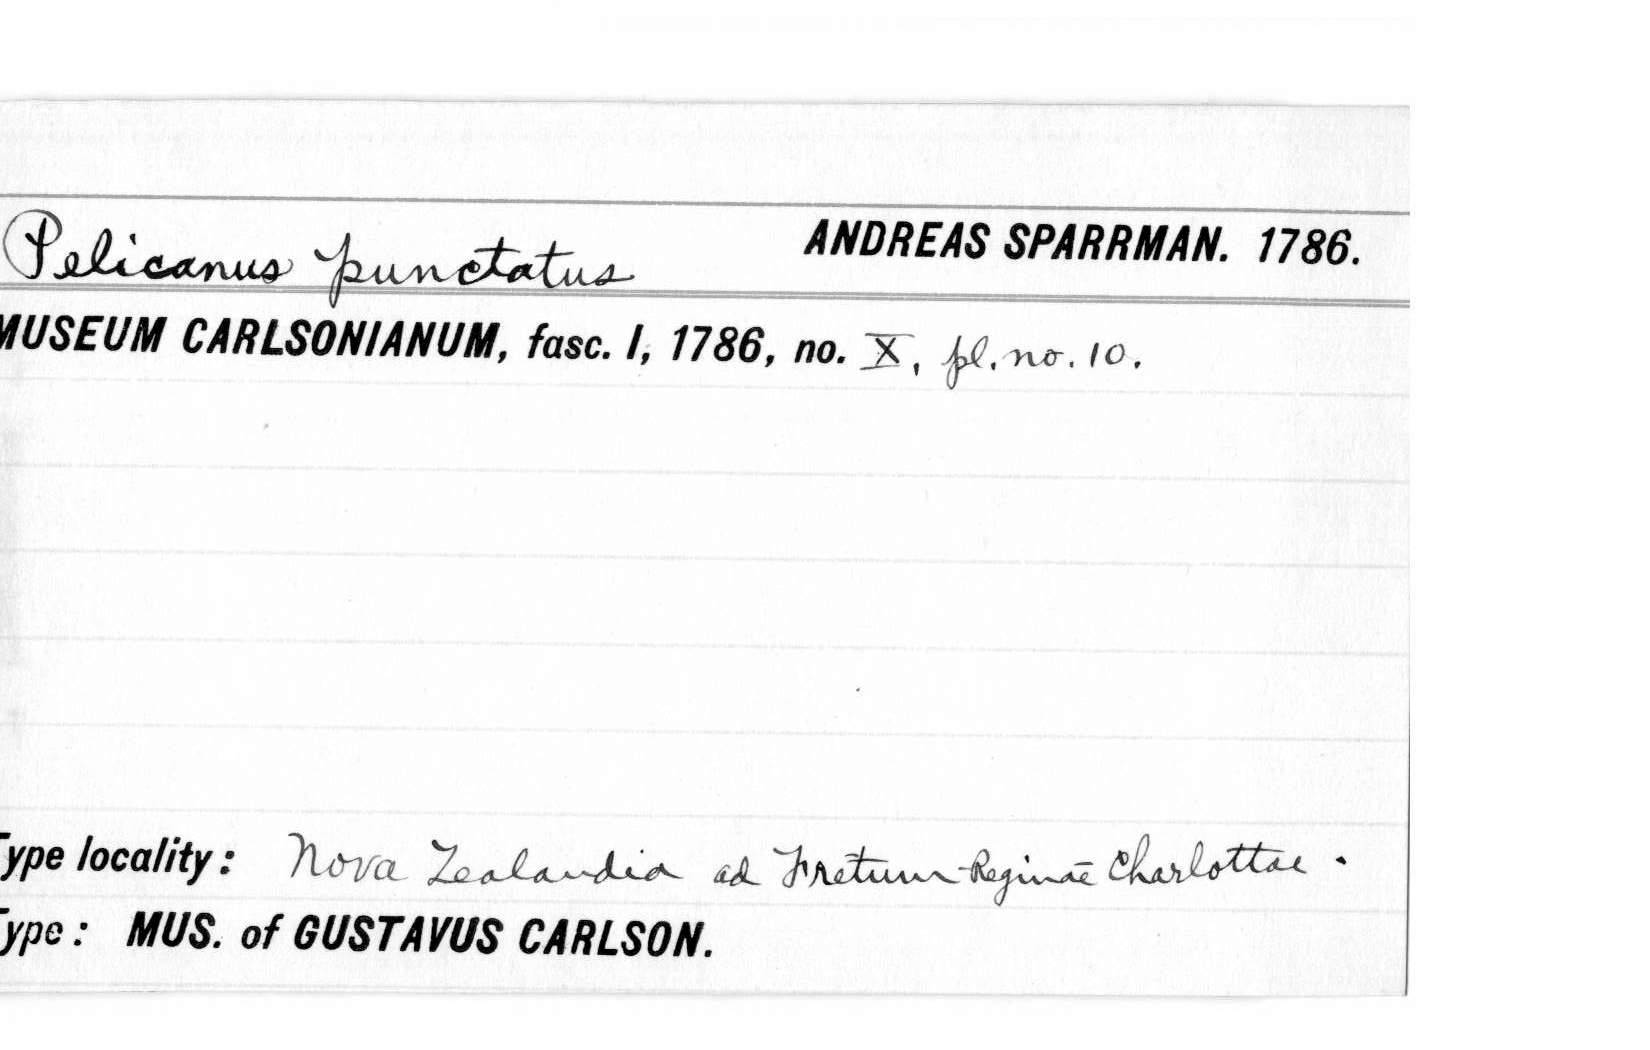 Pelicanus punctatus ANDREAS SPARRMAN. 1786.
MUSEUM CARLSONIANUM, fasc. I, 1786, no. X, pl. no. 10.
Type locality: Nova Zealandia ad Fretum Reginae Charlottae.
Type: MUS. of GUSTAVUS CARLSON.